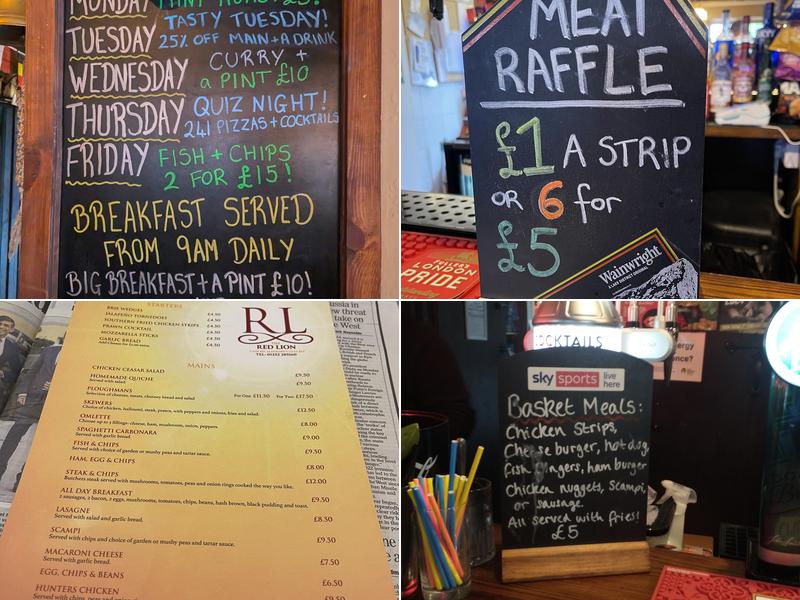 MONDAY
TUESDAY TASTY TUESDAY!
25% OFF MAIN + A DRINK
WEDNESDAY CURRY +
a PINT £10
THURSDAY QUIZ NIGHT!
241 PIZZAS + COCKTAILS
FRIDAY FISH + CHIPS
2 FOR £15!
BREAKFAST SERVED
FROM 9AM DAILY
BIG BREAKFAST + A PINT £10!
MEAT
RAFFLE
£1 A STRIP
OR 6 for
£5
LONDON
PRIDE
Wainwright
STARTERS
BRIE WEDGES £4.50
JALAPENO TORPEDOES £4.50
SOUTHERN FRIED CHICKEN STRIPS £4.50
PRAWN COCKTAIL £4.50
MOZZARELLA STICKS £4.50
GARLIC BREAD £4.50
RL
RED LION
MAINS
CHICKEN CEASAR SALAD £9.50
HOMEMADE QUICHE £9.50
Served with salad.
PLOUGHMANS For One £11.50 For Two £17.50
Selection of cheeses, meats, chutney bread and salad
SKEWERS £12.50
Choice of chicken, halloumi, steak, prawn, with peppers and onions, fries and salad.
OMLETTE £8.00
Choose up to 3 fillings: cheese, ham, mushroom, onion, peppers.
SPAGHETTI CARBONARA £9.00
Served with garlic bread.
FISH & CHIPS £9.50
Served with choice of garden or mushy peas and tartar sauce.
HAM, EGG & CHIPS £8.00
STEAK & CHIPS £12.00
Butchers steak served with mushrooms, tomatoes, peas and onion rings cooked the way you like.
ALL DAY BREAKFAST £9.50
2 sausages, 2 bacon, 2 eggs, mushrooms, tomatoes, chips, beans, hash brown, black pudding and toast.
LASAGNE £8.50
Served with salad and garlic bread.
SCAMPI £9.50
Served with chips and choice of garden or mushy peas and tartar sauce.
MACARONI CHEESE £7.50
Served with garlic bread.
EGG, CHIPS & BEANS £6.50
HUNTERS CHICKEN £9.50
COCKTAILS
sky sports live
here
Basket Meals:
Chicken Strips,
Cheese burger, hot dog,
Fish fingers, ham burger
Chicken nuggets, Scampi
or sausage.
All served with fries!
£5